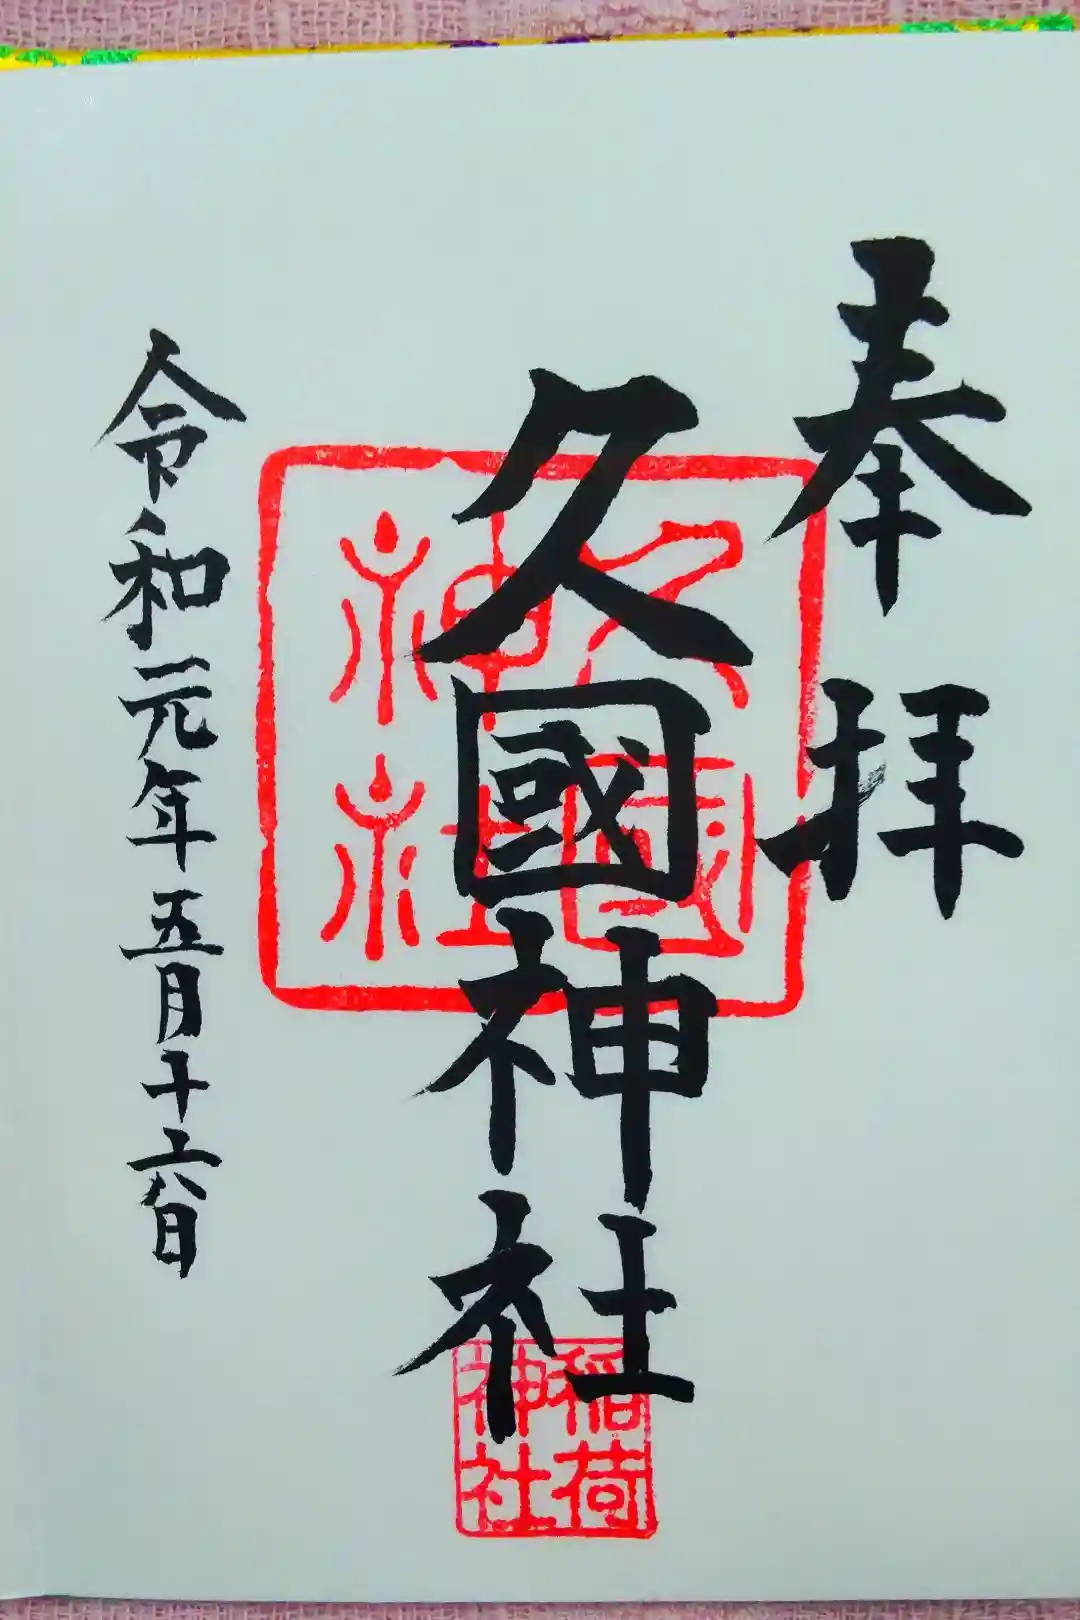 奉拝
久國神社
久國神社
稲荷神社
令和元年五月十六日